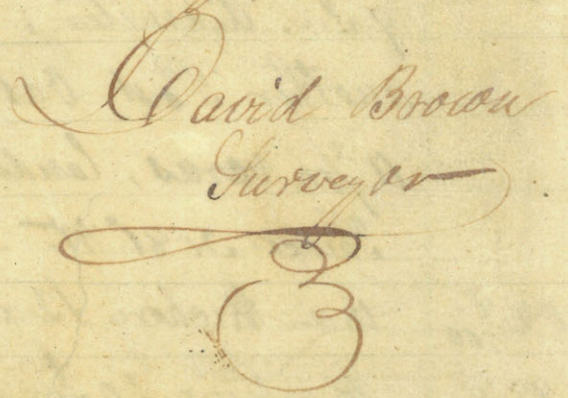 David Brown
Surveyor